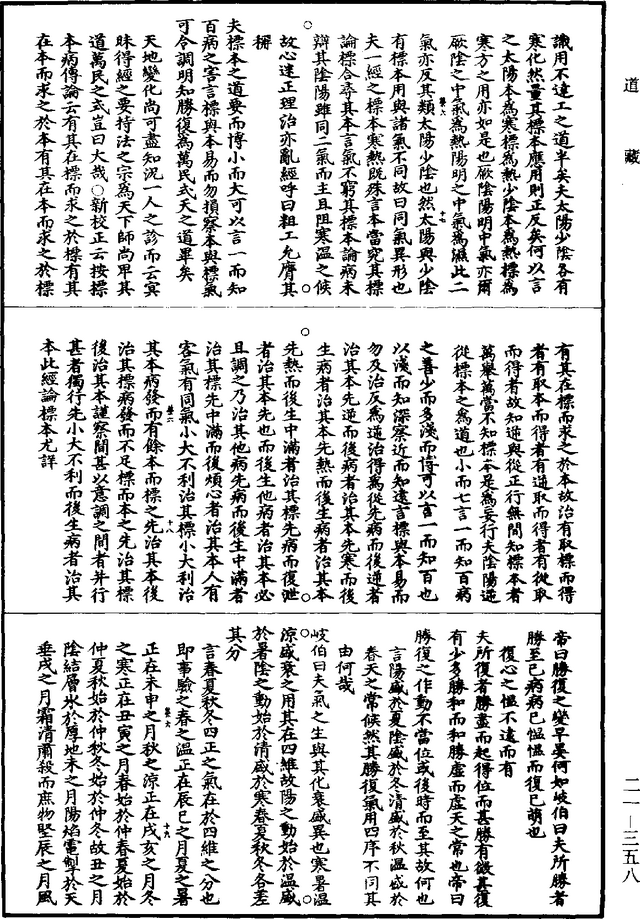 道藏
識用不達工之道半矣夫太陽少陰各有
寒化然量其標本應用則正反矣何以言
之太陽本為寒標為熱少陰本為熱標為
寒方之用亦如是也厥陰陽明中氣亦爾
厥陰之中氣為熱陽明之中氣為濕此二
氣亦反其類太陽少陰也然太陽與少陰
有標本用與諸氣不同故曰同氣異形也
夫一經之標本寒熱既殊言本當究其標
論標合尋其本言氣不窮其標本論病未
辯其陰陽雖同一氣而主且阻寒溫之候
故心迷正理治亦亂經呼曰粗工允膺其
稱
夫標本之道要而博小而大可以言一而知
百病之害言標與本易而勿損察本與標氣
可令調明知勝復為萬民式天之道畢矣
天地變化尚可盡知況一人之診而云冥
昧得經之要持法之宗為天下師尚卑其
道萬民之式豈曰大哉○新校正云按標
本病傳論云有其在標而求之於標有其
在本而求之於本有其在本而求之於標
有其在標而求之於本故治有取標而得
者有取本而得者有逆取而得者有從取
而得者故知逆與從正行無問知標本者
萬舉萬當不知標本是為妄行夫陰陽逆
從標本之為道也小而大言一而知百病
之害少而多淺而博可以言一而知百也
以淺而知深察近而知遠言標與本易而
勿及治反為逆治得為從先病而後逆者
治其本先逆而後病者治其本先寒而後
生病者治其本先熱而後生病者治其本
先熱而後生中滿者治其標先病而後泄
者治其本先泄而後生他病者治其本必
且調之乃治其他病先病而後生中滿者
治其標先中滿而後煩心者治其本人有
客氣有同氣小大不利治其標小大利治
其本病發而有餘本而標之先治其本後
治其標病發而不足標而本之先治其標
後治其本謹察間甚以意調之間者并行
甚者獨行先小大不利而後生病者治其
本此經論標本尤詳
帝曰勝復之變早晏何如岐伯曰夫所勝者
勝至已病病已慍慍而復已萌也
復心之慍不遠而有
夫所復者勝盡而起得位而甚勝有微甚復
有少多勝和而和勝虛而虛天之常也帝曰
勝復之作動不當位或後時而至其故何也
言陽盛於夏陰盛於冬清盛於秋溫盛於
春天之常候然其勝復氣用四序不同其
由何哉
岐伯曰夫氣之生與其化衰盛異也寒暑溫
涼盛衰之用其在四維故陽之動始於溫盛
於暑陰之動始於清盛於寒春夏秋冬各差
其分
言春夏秋冬四正之氣在於四維之分也
即事驗之春之溫正在辰巳之月夏之暑
正在未申之月秋之涼正在戌亥之月冬
之寒正在丑寅之月春始於仲春夏始於
仲夏秋始於仲秋冬始於仲冬故丑之月
陰結層氷於厚地未之月陽焰電掣於天
垂戌之月霜清肅殺而庶物堅辰之月風
二一—三五八